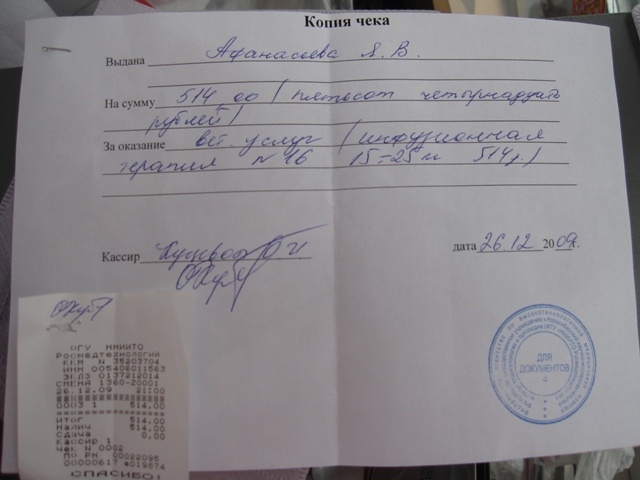 Копия чека
Выдана Афанасьева Я. В.
На сумму 514 00 (пятьсот четырнадцать
рублей)
За оказание вет. услуг (инфузионная
терапия N 16 15-25 514р.)
Кассир
дата 26.12 2009г.
ДЛЯ
ДОКУМЕНТОВ
4
ФГУ ННИИТО
Росмедтехнологии
ККМ N 35203704
ИНН 005406011563
ЭКЛЗ 0137212014
СМЕНА 1360-20001
26.12.09 21:00
0003 1 514.00
ИТОГ 514.00
Налич 514.00
Сдача 0.00
Кассир 1
Чек N 0002
ПО РН 00022095
00000617 #019874
СПАСИБО!